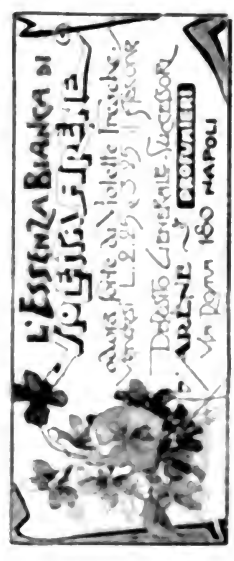 L'ESSENZA BIANCA DI
VIOLETTA D'ARÈNE
odora forte di Violette fresche.
Vendesi L. 2.25 e 3.95 il flacone
DEPOSITO GENERALE SUCCESSORI
D'ARÈNE PROFUMIERI
VIA ROMA 180 NAPOLI